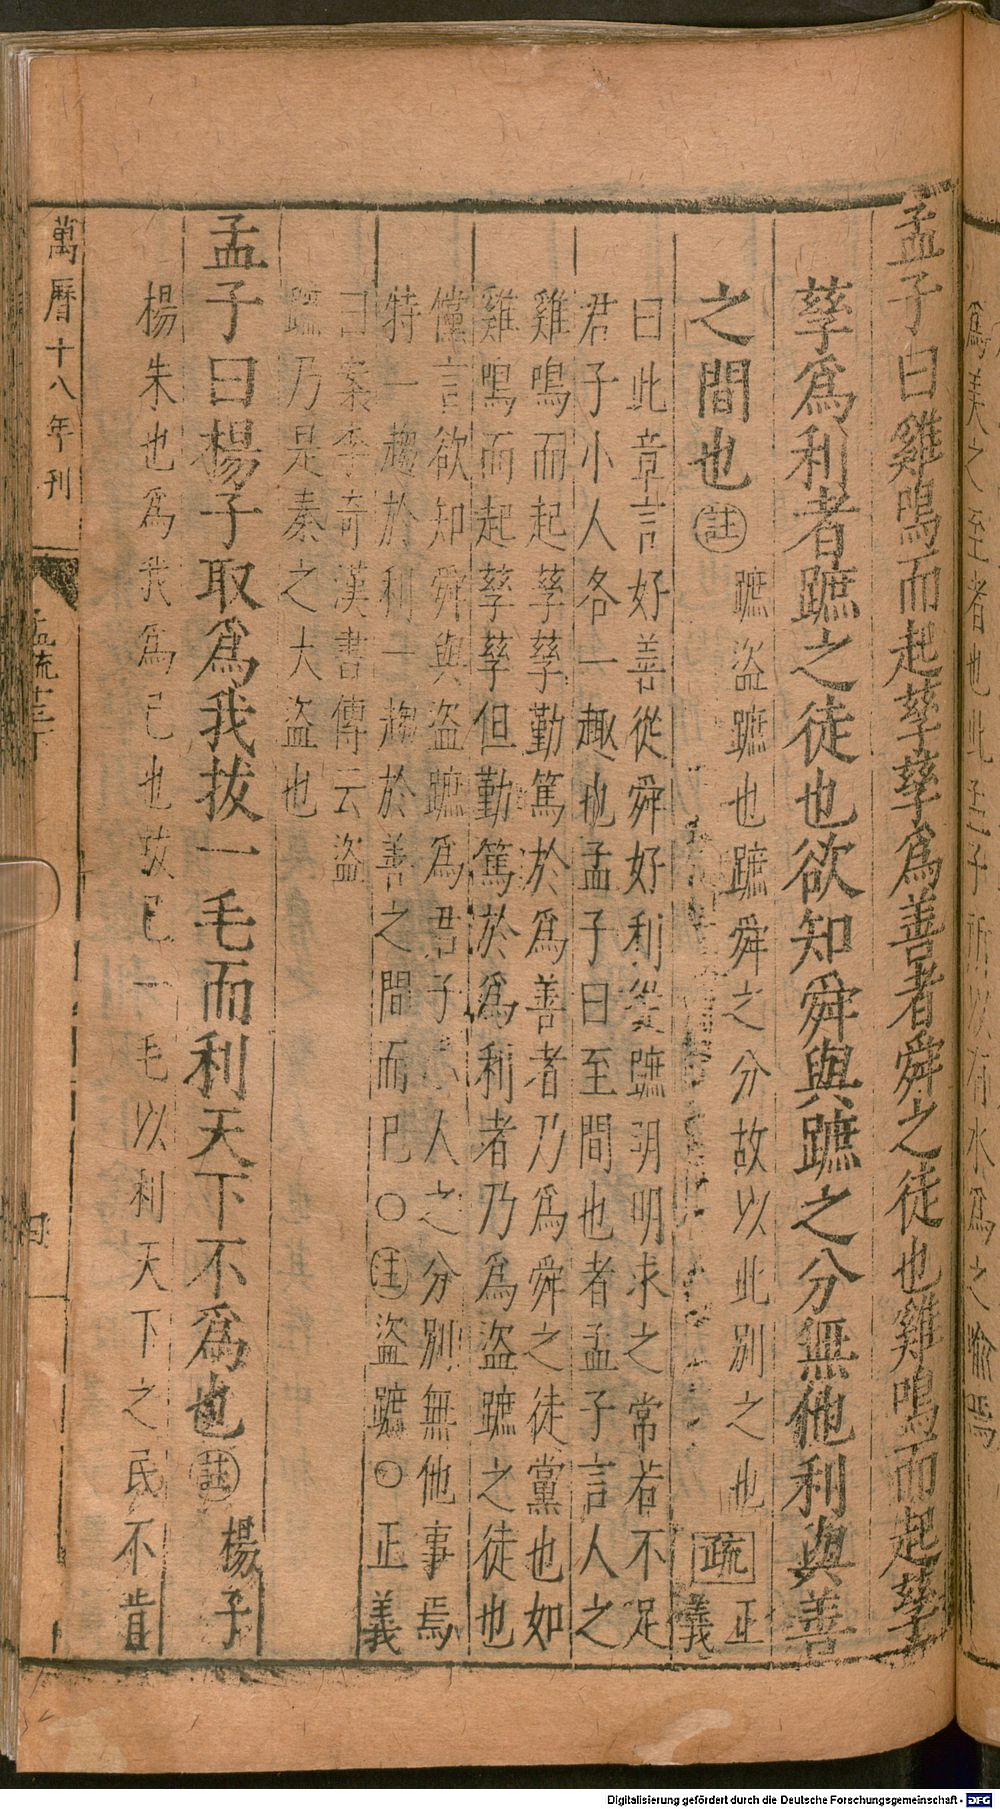 爲美之至者也此孟子所以有水爲之喻焉
孟子曰雞鳴而起孳孳爲善者舜之徒也雞鳴而起孳
孳爲利者蹠之徒也欲知舜與蹠之分無他利與善
之間也註
蹠盜蹠也蹠舜之分故以此別之也疏正
義
曰此章言好善從舜好利從蹠明明求之常若不足
君子小人各一趣也孟子曰至間也者孟子言人之
雞鳴而起孳孳勤篤於爲善者乃爲舜之徒黨也如
雞鳴而起孳孳但勤篤於爲利者乃爲盜蹠之徒也
儻言欲知舜與盜蹠爲君子小人之分別無他事焉
特一趨於利一趨於善之間而已○注盜蹠○正義
曰案李奇漢書傳云盜
蹠乃是秦之大盜也
孟子曰楊子取爲我拔一毛而利天下不爲也註楊子
楊朱也爲我爲己也拔己一毛以利天下之民不肯
萬曆十八年刊
孟疏十三下
Digitalisierung gefördert durch die Deutsche Forschungsgemeinschaft - DFG